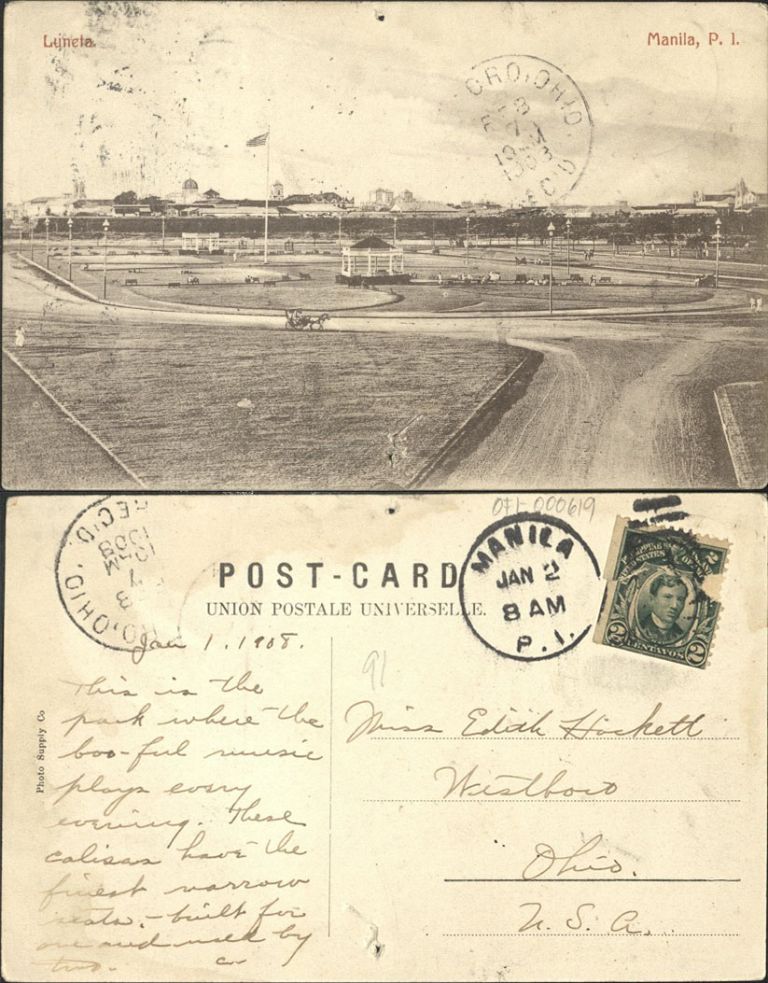 Lyneta.
Manila, P. I.
ORO, OHIO.
8
7
1908
REC'D
071-000619
REC'D.
1908
8
ORO, OHIO.
POST-CARD
UNION POSTALE UNIVERSELLE.
MANILA
JAN 2
8 AM
P. I.
2
2 CENTAVOS 2
Jan 1. 1908.
91
This is the
park where the
boo-ful music
plays every
evening. These
calisas have the
finest narrow
seats, - built for
one and used by
two.
Photo Supply Co
Miss Edith Hockett
Westboro
Ohio.
U. S. A.